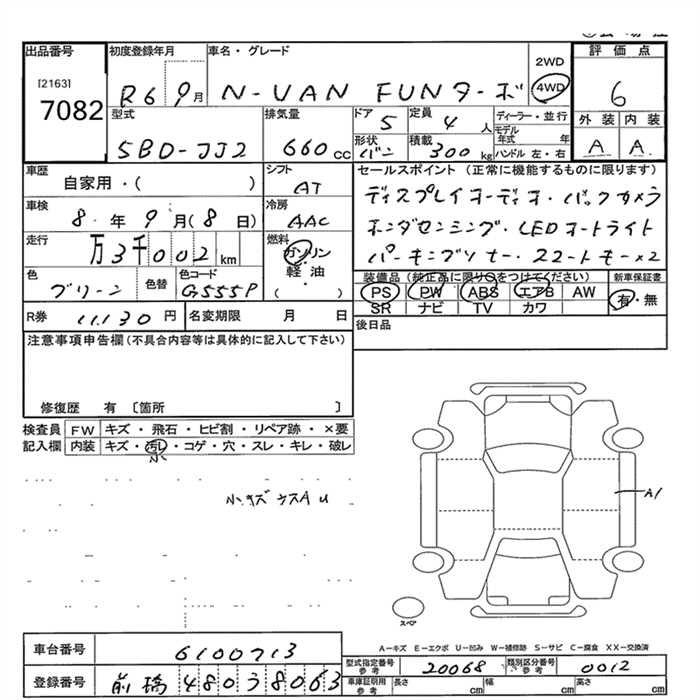 出品番号 初度登録年月 車名・グレード 評価点
[2163]
7082
R6 9月 N-VAN FUNターボ 2WD 4WD 6
型式 排気量 ドア 定員 ディーラー・並行 外装 内装
5BD-JJ2 660cc 5 4人 モデル年式 年 A A
形状 積載
バン 300kg ハンドル 左・右
車歴 シフト セールスポイント(正常に機能するものに限ります)
自家用・( ) AT ディスプレイオーディオ・バックカメラ
車検 冷房
8年9月(8日) AAC ホンダセンシング・LEDオートライト
走行 燃料
万3千002km ガソリン パーキングソナー・スマートキー×2
軽油
・
( )
色 色替 色コード 装備品(純正品に限り○をつけてください) 新車保証書
グリーン G555P PS PW ABS エアB AW 有・無
SR ナビ TV カワ
R券 11,130円 名変期限 月 日 後日品
注意事項申告欄(不具合内容等は具体的に記入して下さい)
修復歴 有 〔箇所 〕
検査員 FW キズ・飛石・ヒビ割・リペア跡・×要
記入欄 内装 キズ・汚レ・コゲ・穴・スレ・キレ・破レ
小
小キズ ウスAU
A1
スペア
A-キズ E-エクボ U-凹み W-補修跡 S-サビ C-腐食 XX-交換済
車台番号 6100713
型式指定番号 参考 20068 類別区分番号 参考 0012
登録番号 前橋 480 さ 8063
車庫証明用 参考 長さ cm 幅 cm 高さ cm